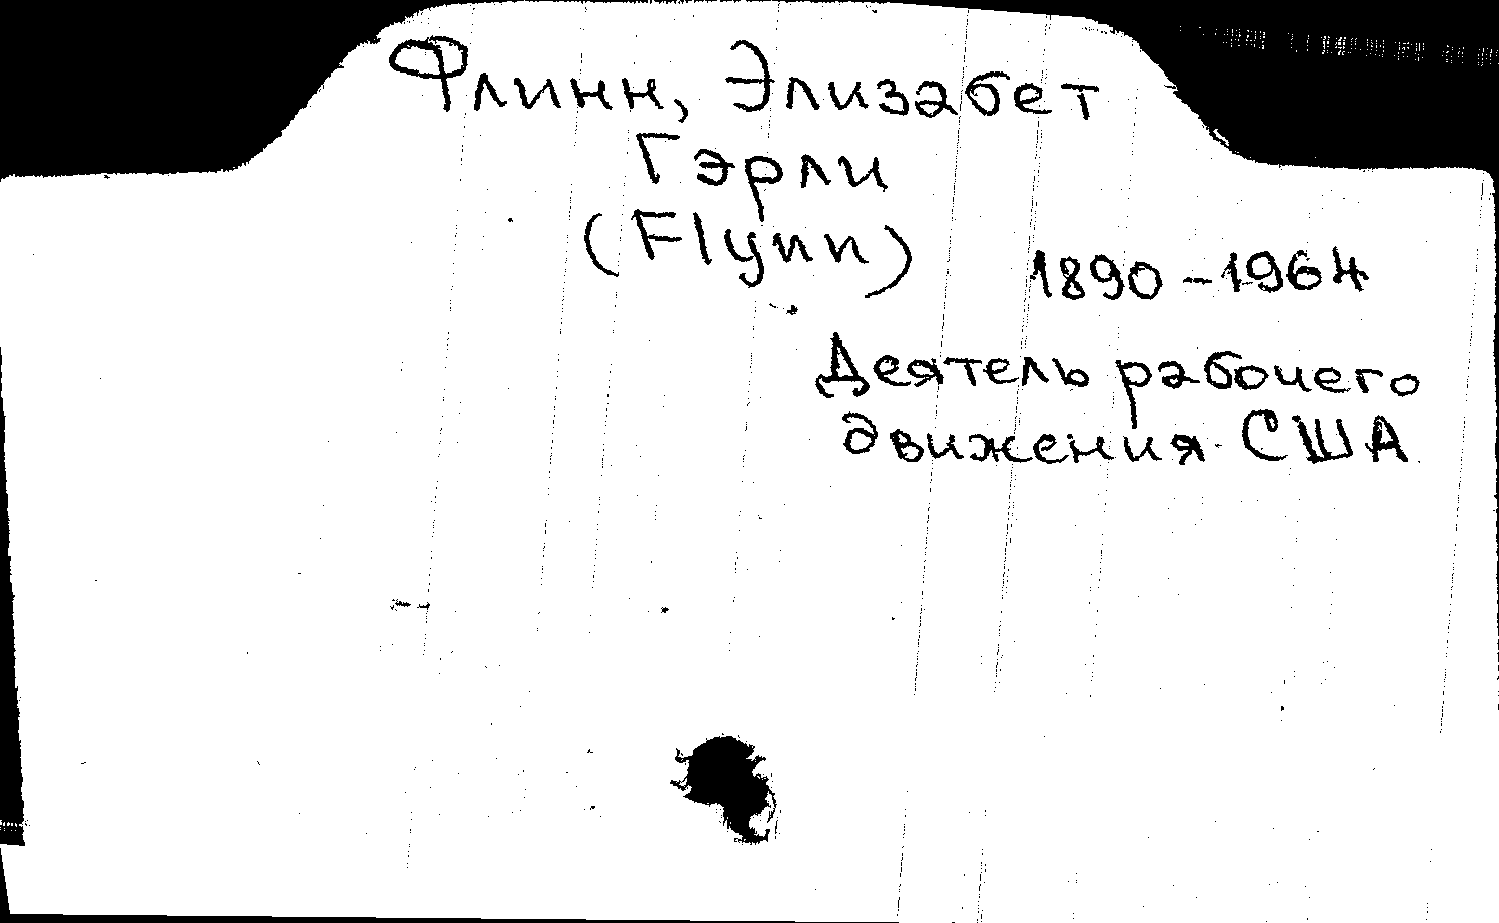 Флинн, Элизабет
Гэрли
(Flynn)
1890-1964
Деятель рабочего
движения США